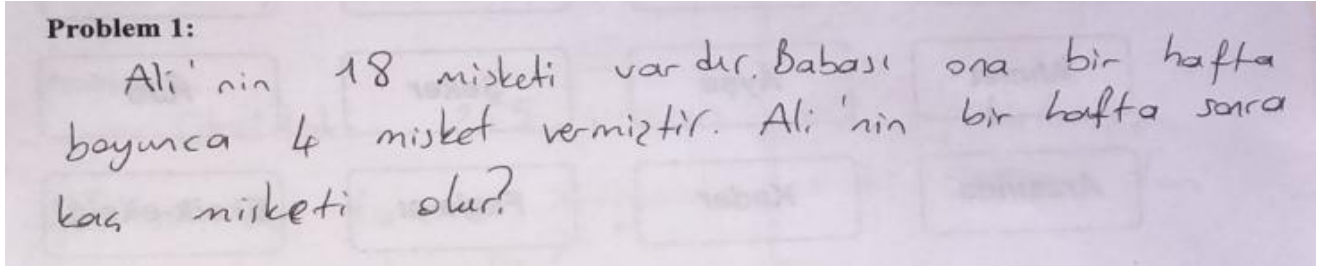 Problem 1:
Ali'nin 18 misketi vardır. Babası ona bir hafta
boyunca 4 misket vermiştir. Ali'nin bir hafta sonra
kaç misketi olur?